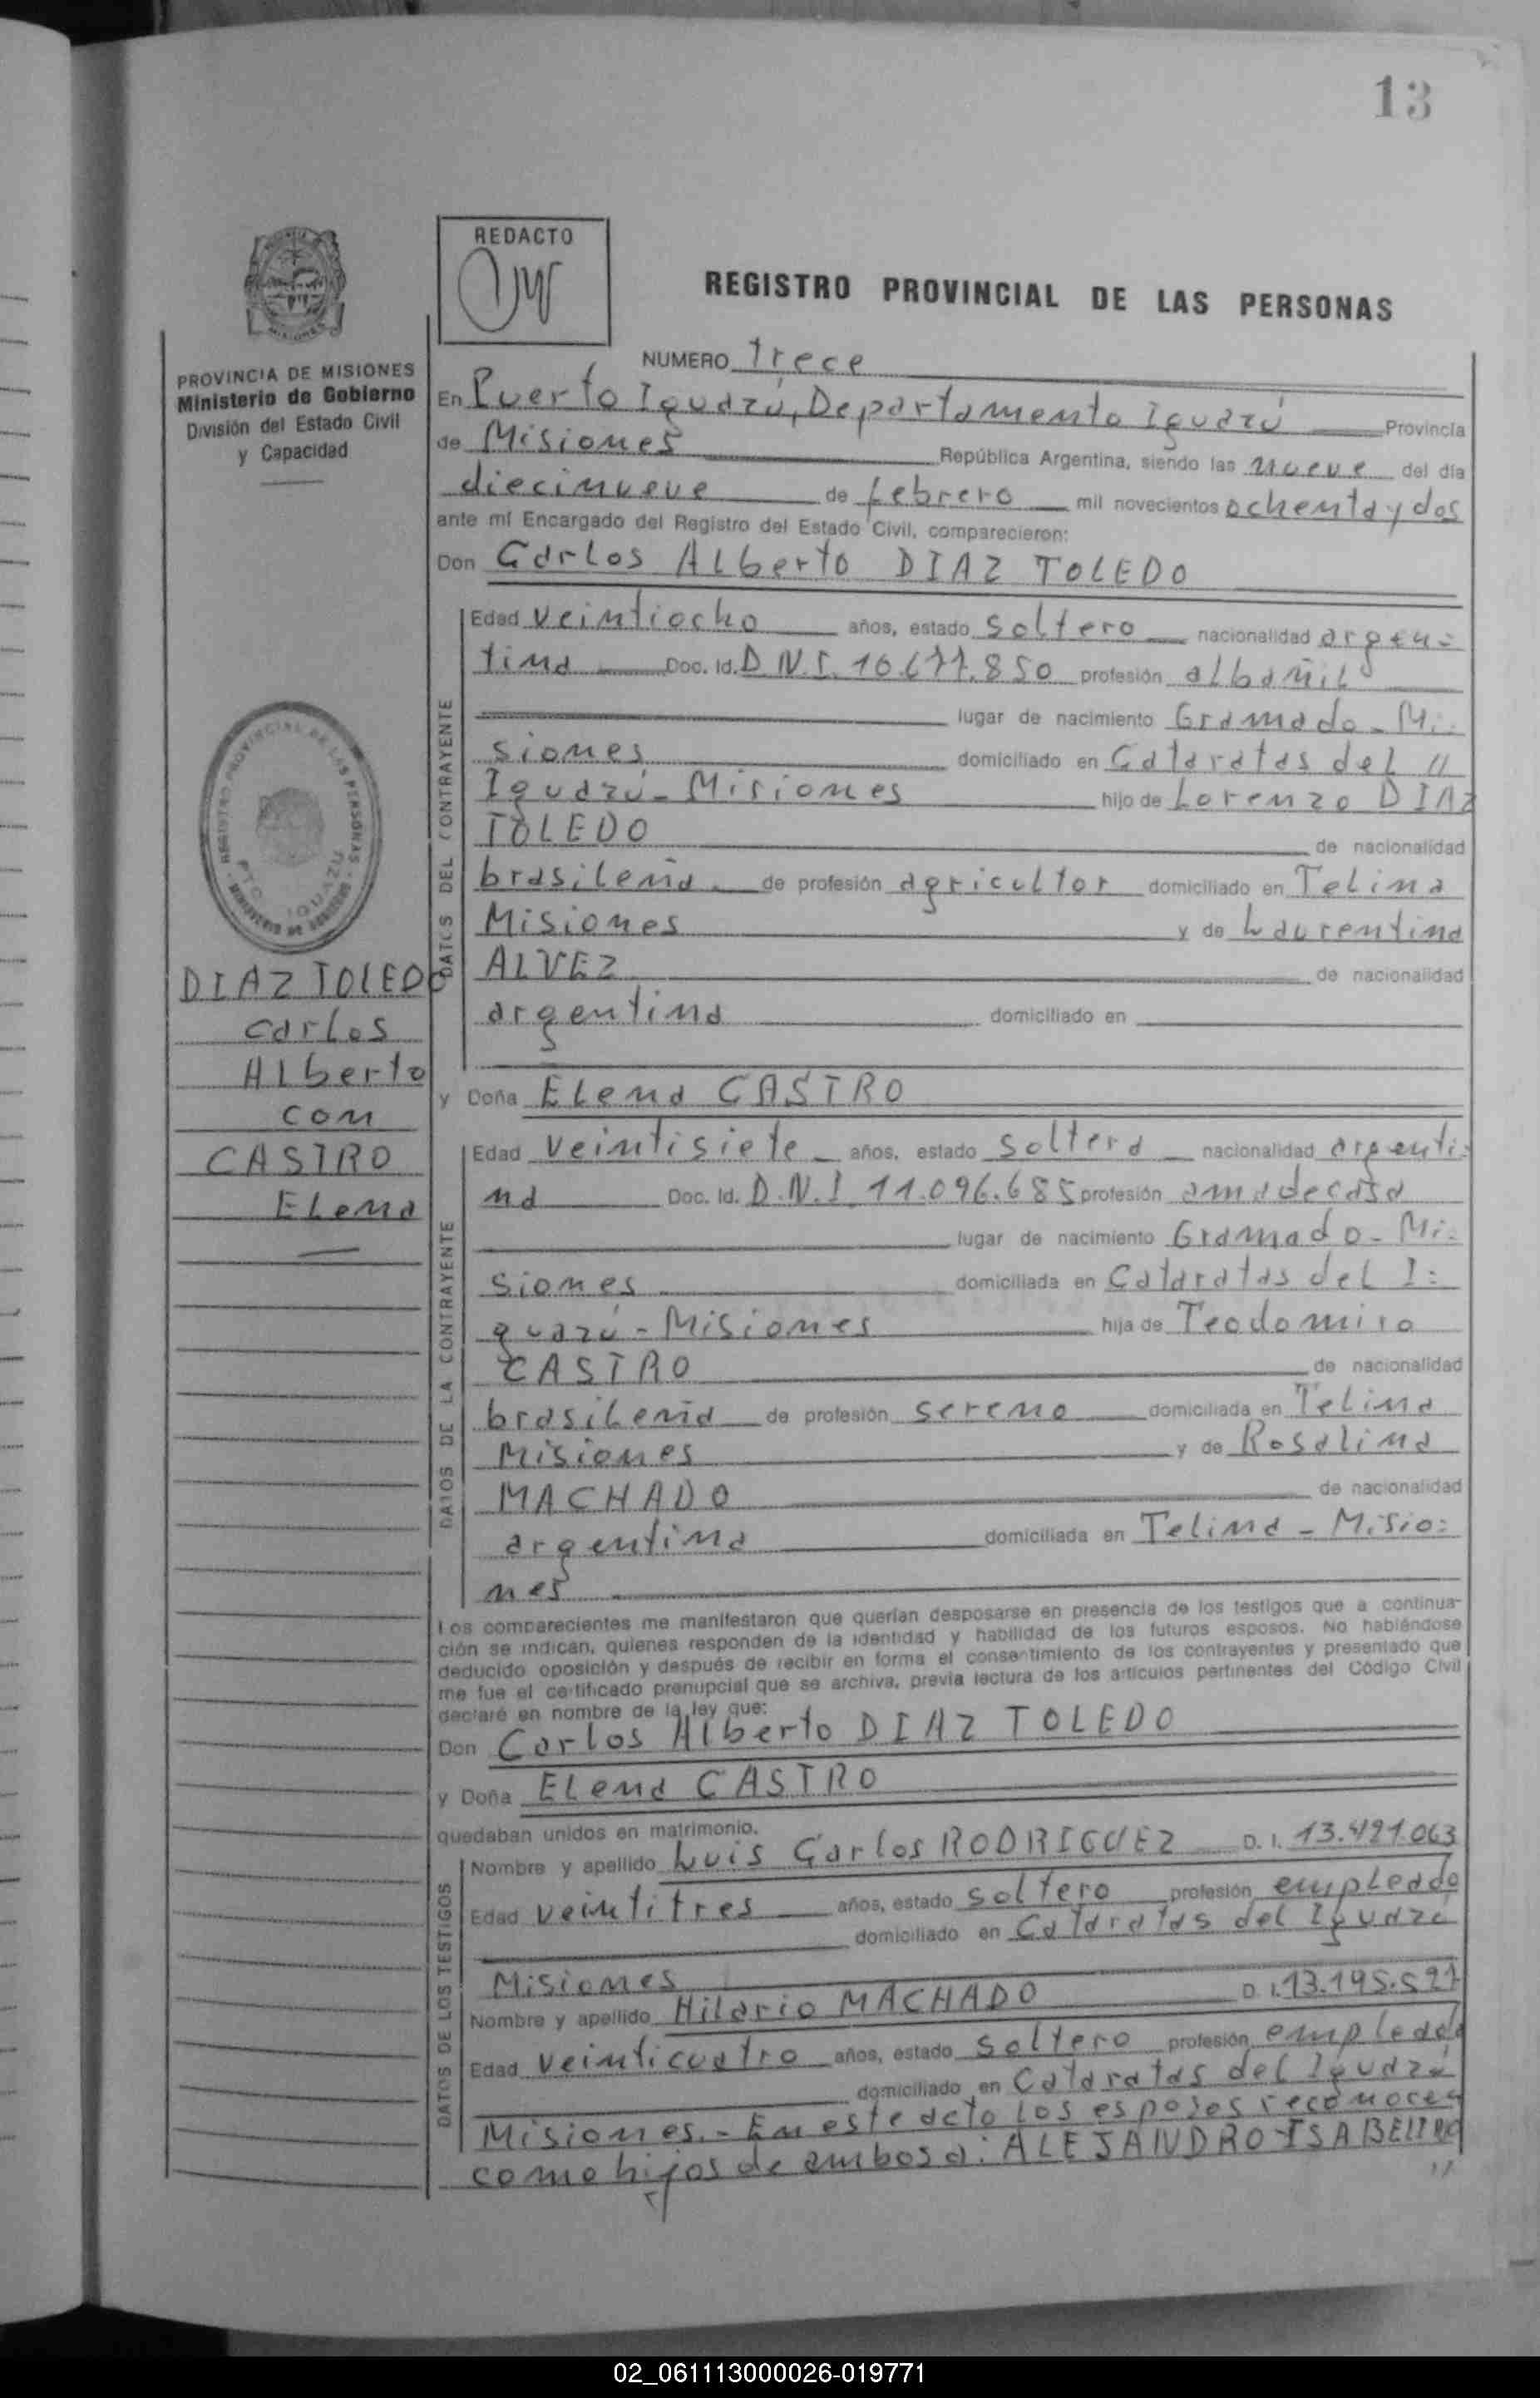 13
REDACTO
REGISTRO PROVINCIAL DE LAS PERSONAS
PROVINCIA DE MISIONES
Ministerio de Gobierno
División del Estado Civil
y Capacidad
REGISTRO PROVINCIAL DE LAS PERSONAS
PTO. IGUAZU
DIAZ TOLEDO
Carlos
Alberto
con
CASTRO
Elena
NUMERO Trece
En Puerto Iguazú, Departamento Iguazú Provincia
de Misiones República Argentina, siendo las nueve del día
diecinueve de febrero mil novecientos ochenta y dos
ante mí Encargado del Registro del Estado Civil, comparecieron:
Don Carlos Alberto DIAZ TOLEDO
DATOS DEL CONTRAYENTE
Edad veintiocho años, estado soltero nacionalidad argen=
tina Doc. Id. D.N.I. 10.677.850 profesión albañil
lugar de nacimiento Gramado - Mi-
siones domiciliado en Cataratas del //
Iguazú - Misiones hijo de Lorenzo DIAZ
TOLEDO de nacionalidad
brasileña de profesión agricultor domiciliado en Telina
Misiones y de Laurentina
ALVEZ de nacionalidad
argentina domiciliado en
y Doña Elena CASTRO
DATOS DE LA CONTRAYENTE
Edad veintisiete años, estado soltera nacionalidad argenti=
na Doc. Id. D.N.I. 11.096.685 profesión ama de casa
lugar de nacimiento Gramado - Mi-
siones domiciliada en Cataratas del I=
guazú - Misiones hija de Teodomiro
CASTRO de nacionalidad
brasileña de profesión sereno domiciliada en Telina
Misiones y de Rosalina
MACHADO de nacionalidad
argentina domiciliada en Telina - Misio=
nes
Los comparecientes me manifestaron que querían desposarse en presencia de los testigos que a continua-
ción se indican, quienes responden de la identidad y habilidad de los futuros esposos. No habiéndose
deducido oposición y después de recibir en forma el consentimiento de los contrayentes y presentado que
me fue el certificado prenupcial que se archiva, previa lectura de los artículos pertinentes del Código Civil
declaré en nombre de la ley que:
Don Carlos Alberto DIAZ TOLEDO
y Doña Elena CASTRO
quedaban unidos en matrimonio.
DATOS DE LOS TESTIGOS
Nombre y apellido Luis Carlos RODRIGUEZ D. I. 13.421.063
Edad veintitres años, estado soltero profesión empleado
domiciliado en Cataratas del Iguazú
Misiones
Nombre y apellido Hilario MACHADO D. I. 13.195.527
Edad veinticuatro años, estado soltero profesión empleado
domiciliado en Cataratas del Iguazú
Misiones.- En este acto los esposos reconocen
como hijos de ambos a: ALEJANDRO ISABELINO
//
02_061113000026-019771